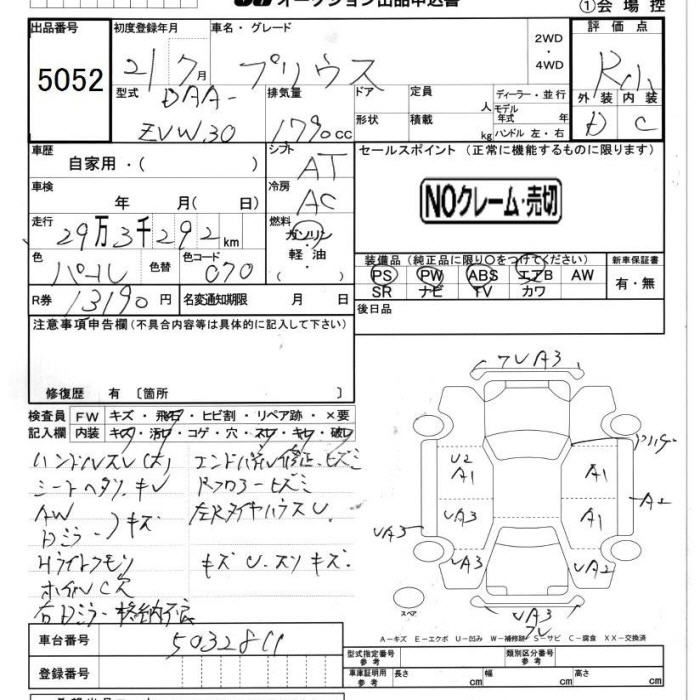 オークション出品申込書
①会場控
出品番号 初度登録年月 車名・グレード 評価点
5052 21 7月 プリウス 2WD ・ 4WD
型式 DAA-ZVW30 排気量 1790cc
ドア 定員 人 ディーラー・並行
形状 積載 kg モデル年式 年 ハンドル 左・右
外装 内装
D C
車歴 自家用・( ) シフト AT
セールスポイント (正常に機能するものに限ります)
車検 年 月( 日) 冷房 AC
NOクレーム・売切
走行 29万3千292km 燃料 ガソリン 軽油 ( )
色 パール 色替 色コード 070
装備品(純正品に限り○をつけてください) 新車保証書
PS PW ABS エアB AW 有・無
SR ナビ TV カワ
R券 13190円 名変通知期限 月 日
後日品
注意事項申告欄(不具合内容等は具体的に記入して下さい)
修復歴 有〔箇所 〕
検査員 FW キズ・飛石・ヒビ割・リペア跡・×要
記入欄 内装 キズ・汚レ・コゲ・穴・スレ・キレ・破レ
ハンドルスレ(大) エンドパネル修正、ヒズミ
シートヘタリ、キレ Rフロアーヒズミ
AW
Dミラー 〉キズ
左RタイヤハウスU
Hライトクモリ キズU、スリキズ
ホイルC欠
右Dミラー格納不良
7UA3
U2 A1 A1
A2
UA3 UA3 A1
UA3 UA2
UA3
スペア
A-キズ E-エクボ U-凹み W-補修跡 S-サビ C-腐食 XX-交換済
車台番号
登録番号
型式指定番号 参考 類別区分番号 参考
車庫証明用 参考 長さ cm 幅 cm 高さ cm